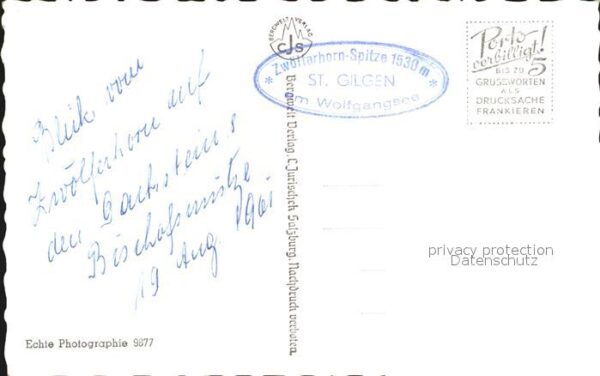 BERGWELT VERLAG
CJS
Zwölferhorn-Spitze 1530 m
ST. GILGEN
am Wolfgangsee
Porto
verbilligt!
BIS ZU 5
GRUSSWORTEN
ALS
DRUCKSACHE
FRANKIEREN
Blick vom
Zwölferhorn auf
den Dachstein &
Bischofsmütze
19 Aug. 1961
Bergwelt Verlag, C. Jurischek Salzburg. Nachdruck verboten.
privacy protection
Datenschutz
Echte Photographie 9877